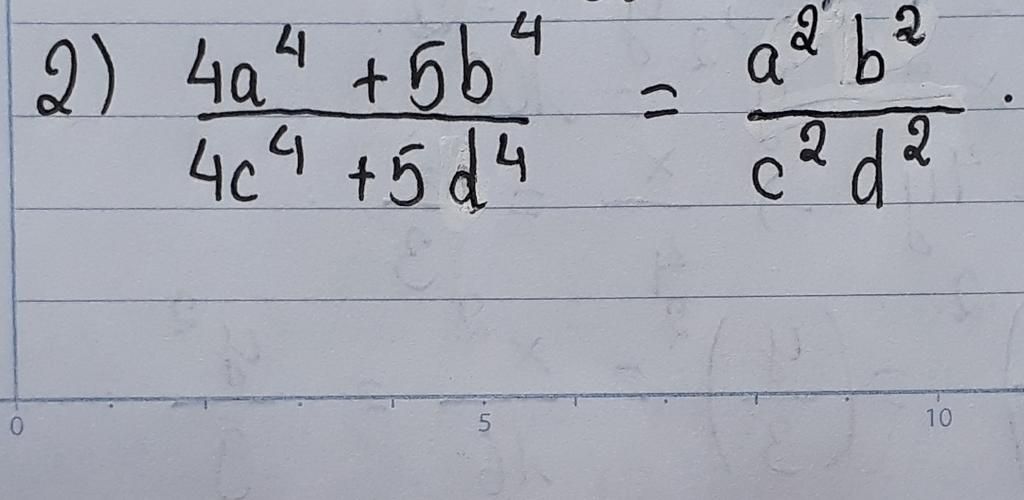 2) \frac{4a^4 + 5b^4}{4c^4 + 5d^4} = \frac{a^2 b^2}{c^2 d^2}.
0 5 10